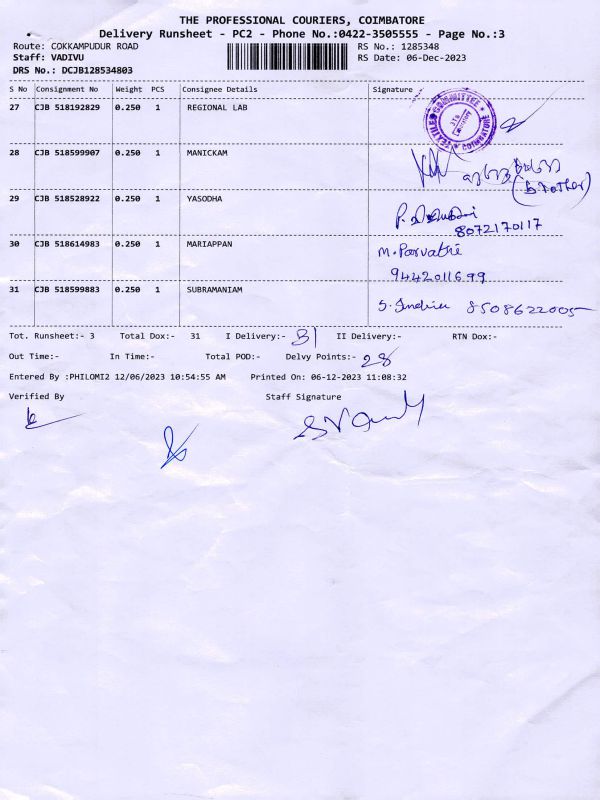 THE PROFESSIONAL COURIERS, COIMBATORE
Delivery Runsheet - PC2 - Phone No.:0422-3505555 - Page No.:3
Route: COKKAMPUDUR ROAD RS No.: 1285348
Staff: VADIVU RS Date: 06-Dec-2023
DRS No.: DCJB128534803
S No Consignment No Weight PCS Consignee Details Signature
27 CJB 518192829 0.250 1 REGIONAL LAB
TEXTILES COMMITTEE COIMBATORE
28 CJB 518599907 0.250 1 MANICKAM
(brother)
29 CJB 518528922 0.250 1 YASODHA
8072170117
30 CJB 518614983 0.250 1 MARIAPPAN M. Parvathi
9442011699
31 CJB 518599883 0.250 1 SUBRAMANIAM S. Indira 8508622005
Tot. Runsheet:- 3 Total Dox:- 31 I Delivery:- 31 II Delivery:- RTN Dox:-
Out Time:- In Time:- Total POD:- Delvy Points:- 28
Entered By :PHILOMI2 12/06/2023 10:54:55 AM Printed On: 06-12-2023 11:08:32
Verified By Staff Signature